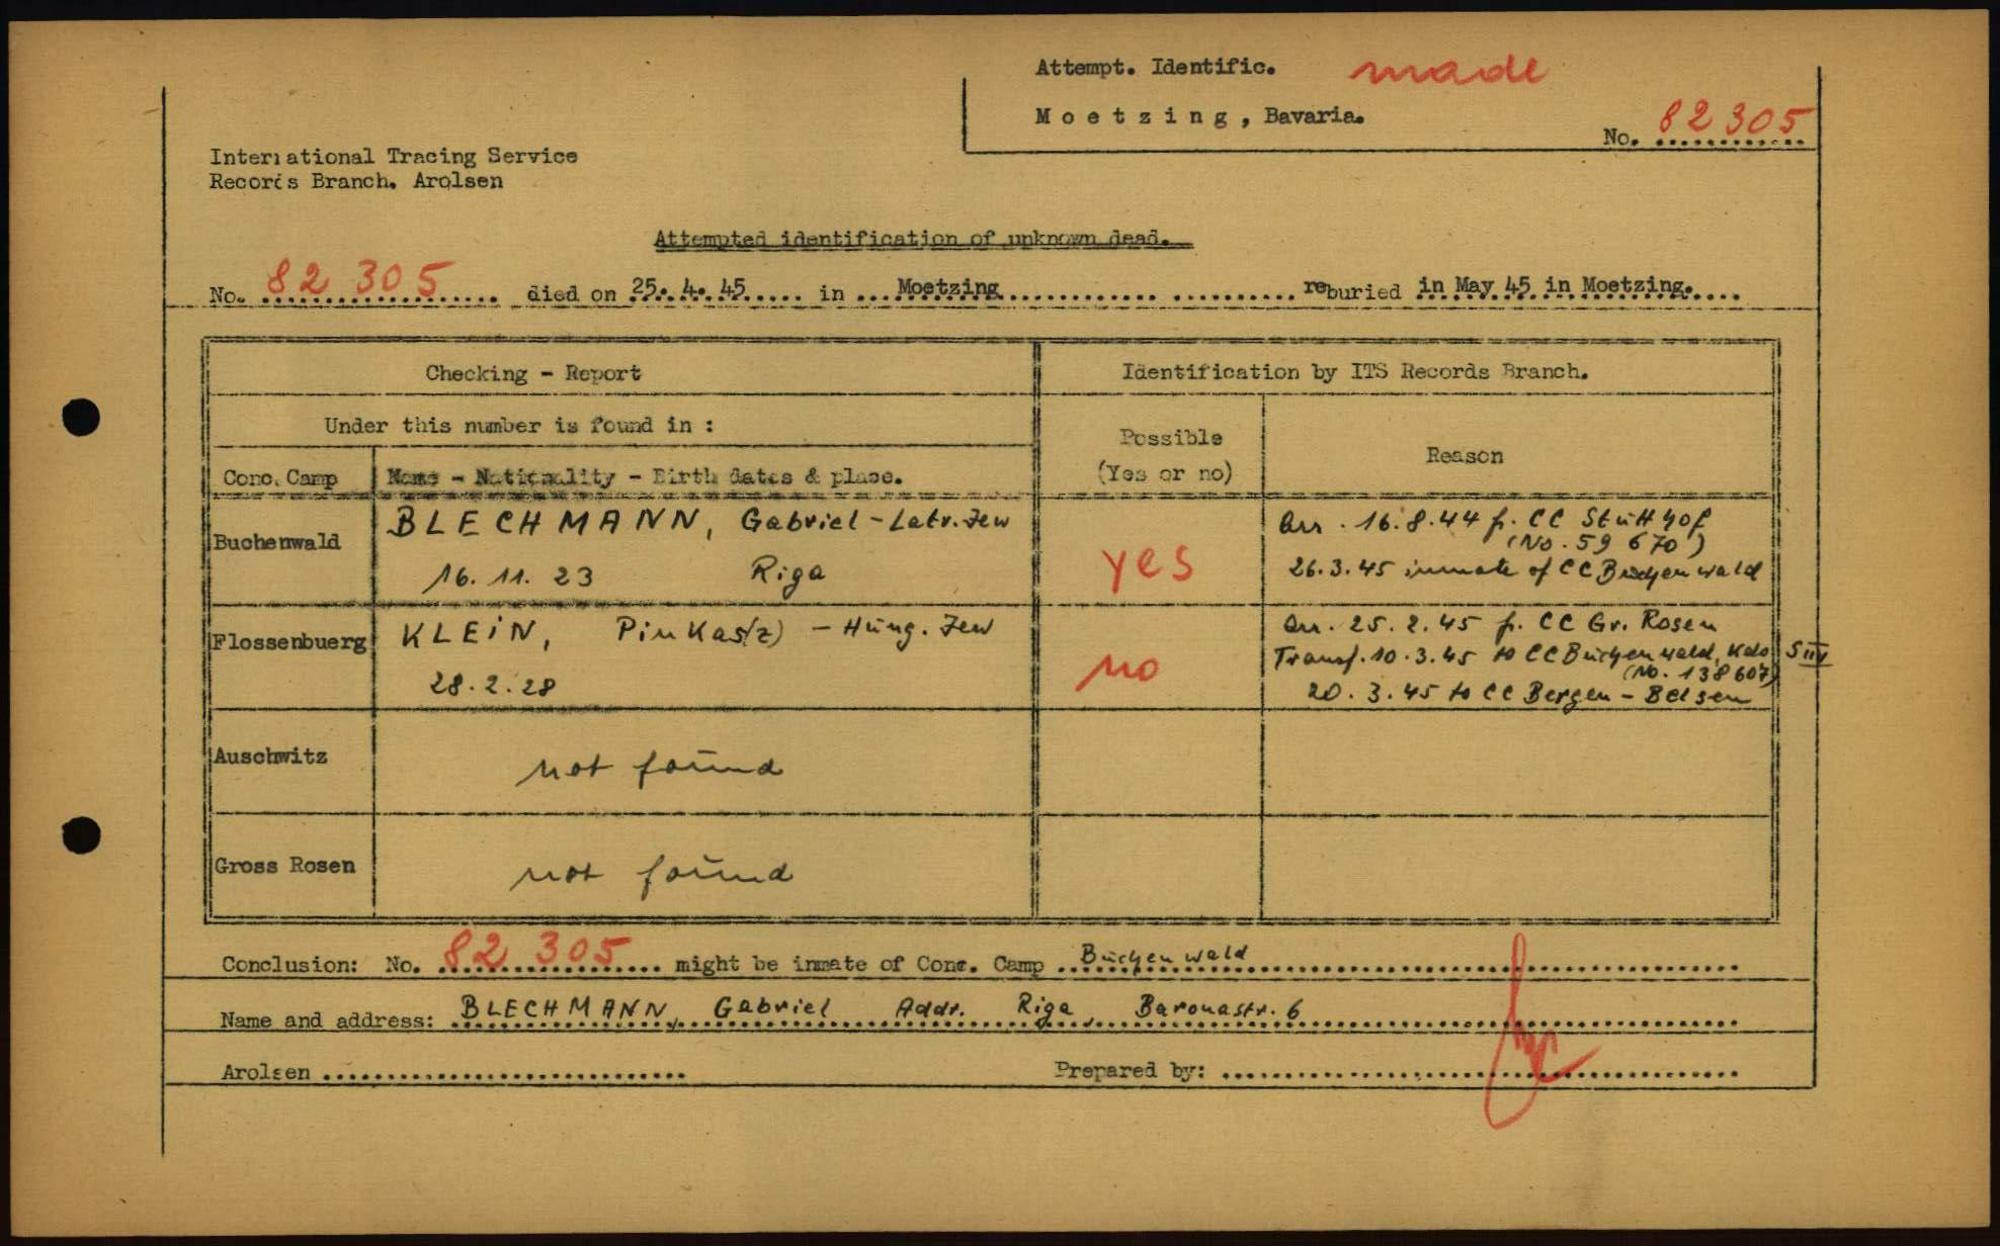 Attempt. Identific. made
Moetzing, Bavaria.
No. 82305
International Tracing Service
Records Branch. Arolsen
Attempted identification of unknown dead.
No. 82 305 died on 25. 4. 45 in Moetzing reburied in May 45 in Moetzing.
Checking - Report
Identification by ITS Records Branch.
Under this number is found in :
Possible
(Yes or no)
Reason
Conc. Camp
Name - Nationality - Birth dates & place.
Buchenwald
BLECHMANN, Gabriel - Latv. Jew
16. 11. 23 Riga
yes
Arr. 16.8.44 fr. CC Stutthof
(No. 59 670)
26.3.45 inmate of CC Buchenwald
Flossenbuerg
KLEIN, Pinkas(z) - Hung. Jew
28.2.28
no
Arr. 25.2.45 fr. CC Gr. Rosen
Transf. 10.3.45 to CC Buchenwald, Kdo S III
(No. 138607)
20.3.45 to CC Bergen-Belsen
Auschwitz
not found
Gross Rosen
not found
Conclusion: No. 82 305 might be inmate of Conc. Camp Buchenwald
Name and address: BLECHMANN, Gabriel Addr. Riga, Baronastr. 6
Arolsen
Prepared by: